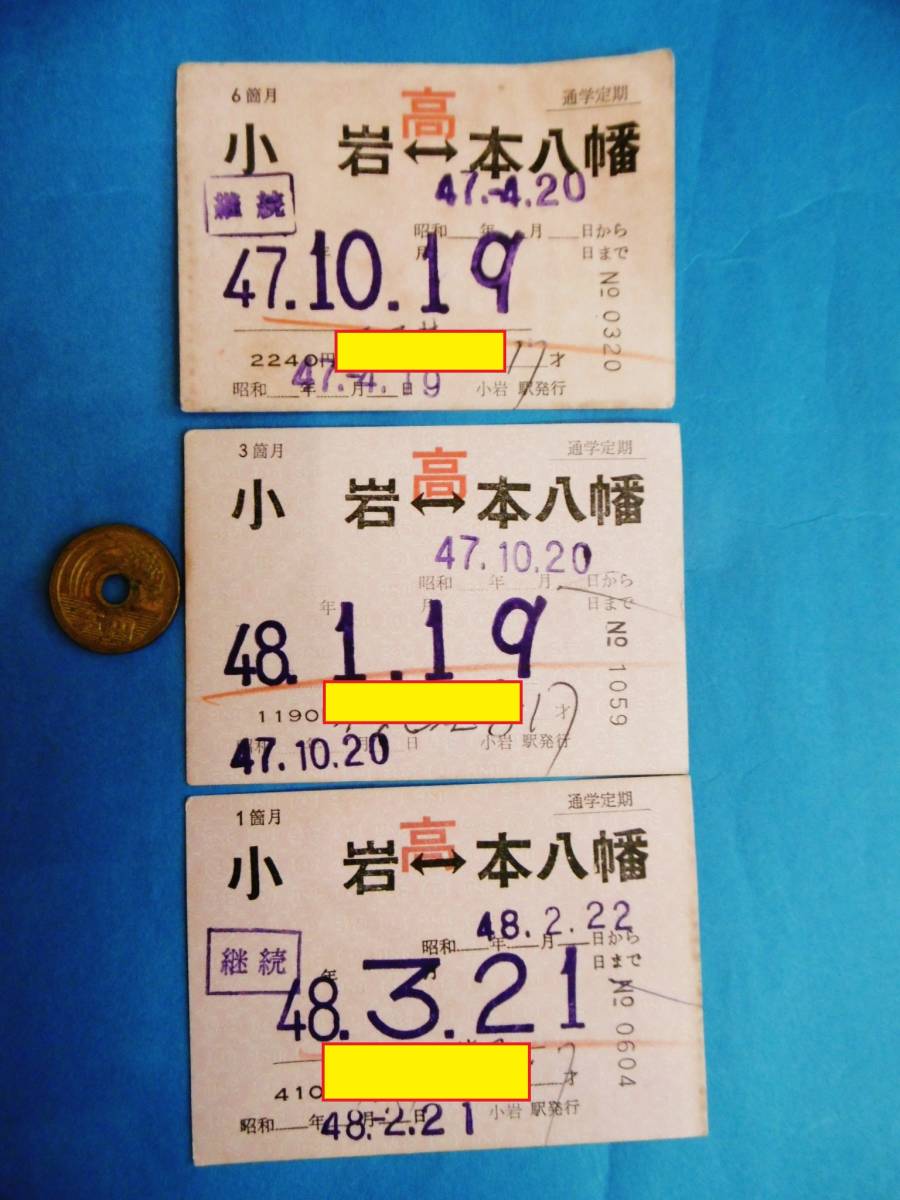 6箇月 通学定期
高
小岩↔本八幡
47.-4.20
継続
昭和 年 月 日から
年 月 日まで
47.10.19
No 0320
2240円 17才
47.-4.19
昭和 年 月 日 小岩駅発行
3箇月 通学定期
高
小岩↔本八幡
47.10.20
昭和 年 月 日から
年 月 日まで
48.1.19
No 1059
1190 17才
昭和 年 月 日 小岩駅発行
47.10.20
1箇月 通学定期
高
小岩↔本八幡
48.2.22
昭和 年 月 日から
継続
年 月 日まで
48.3.21
No 0604
410 才
昭和 年 月 日 小岩駅発行
48.-2.21